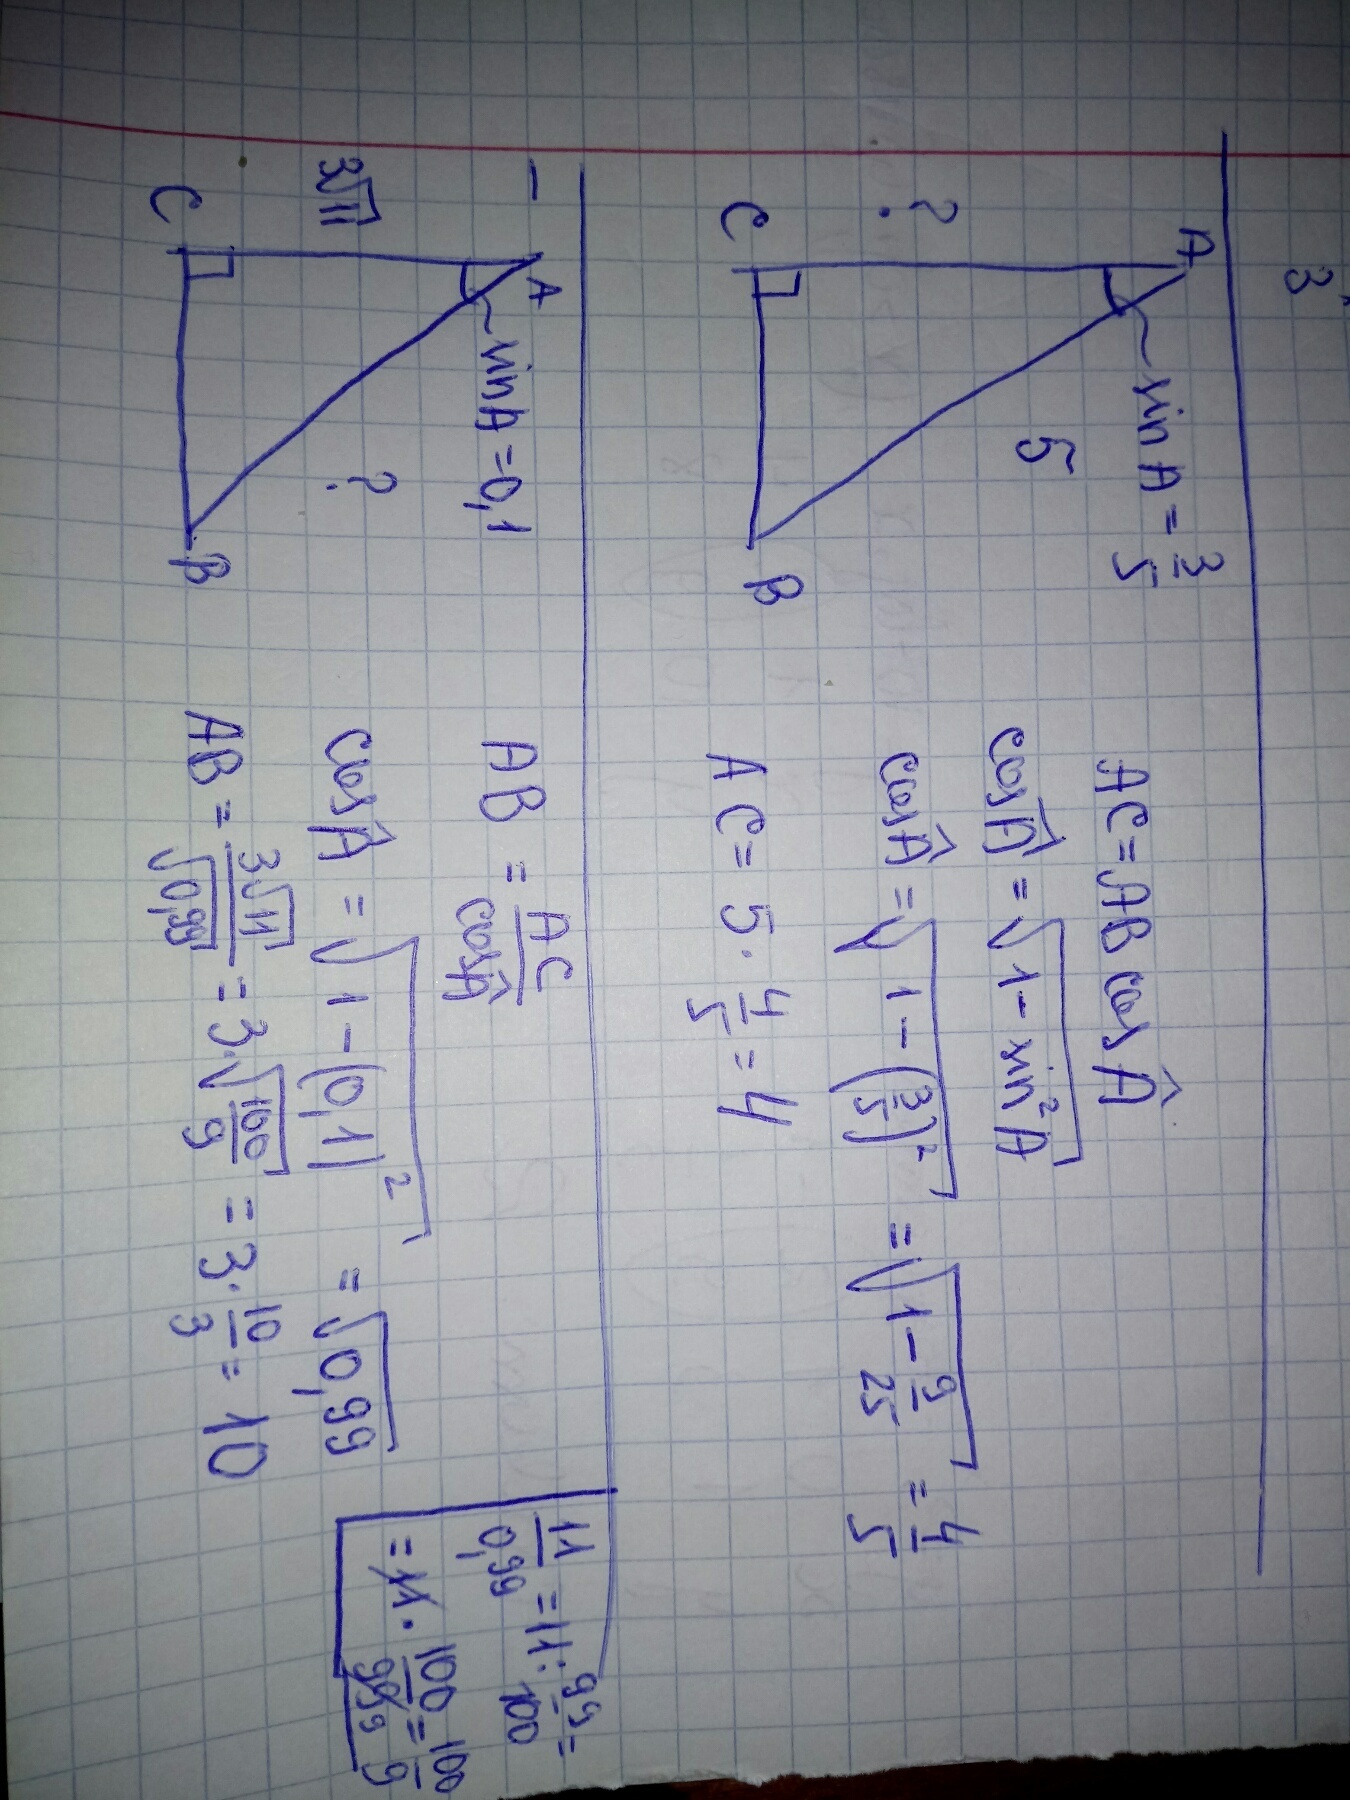 3
A
sin A = 3/5
5
?
C
B
AC = AB cos Â
cos Â = √(1 - sin²A)
cos Â = √(1 - (3/5)²) = √(1 - 9/25) = 4/5
AC = 5 · 4/5 = 4
A
sin A = 0,1
3√11
?
C
B
AB = AC/cos Â
cos Â = √(1 - (0,1)²) = √0,99
AB = 3√11/√0,99 = 3·√(100/9) = 3 · 10/3 = 10
11/0,99 = 11 : 99/100 =
= 11 · 100/99 9 = 100/9